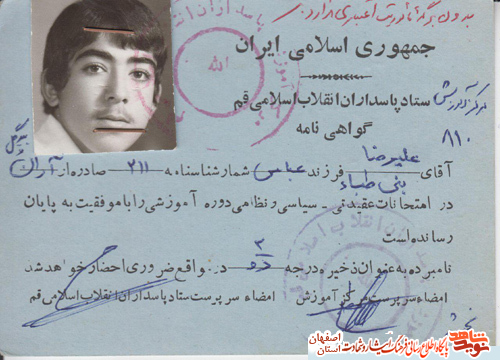 بدون برگه مأموریت اعتباری ندارد.
جمهوری اسلامی ایران
مرکز آموزش ستاد پاسداران انقلاب اسلامی قم
گواهی نامه
۸۱۰
آقای علیرضا بنی طباء فرزند عباس شماره شناسنامه ۲۱۱ صادره از آران
در امتحانات عقیدتی - سیاسی و نظامی دوره آموزشی را با موفقیت به پایان
رسانده است
نامبرده به عنوان ذخیره درجه ۲ دو در مواقع ضروری احضار خواهد شد
امضاء سرپرست مرکز آموزش امضاء سرپرست ستاد پاسداران انقلاب اسلامی قم
نوید شاهد
پایگاه اطلاع رسانی فرهنگ ایثار و شهادت
استان اصفهان